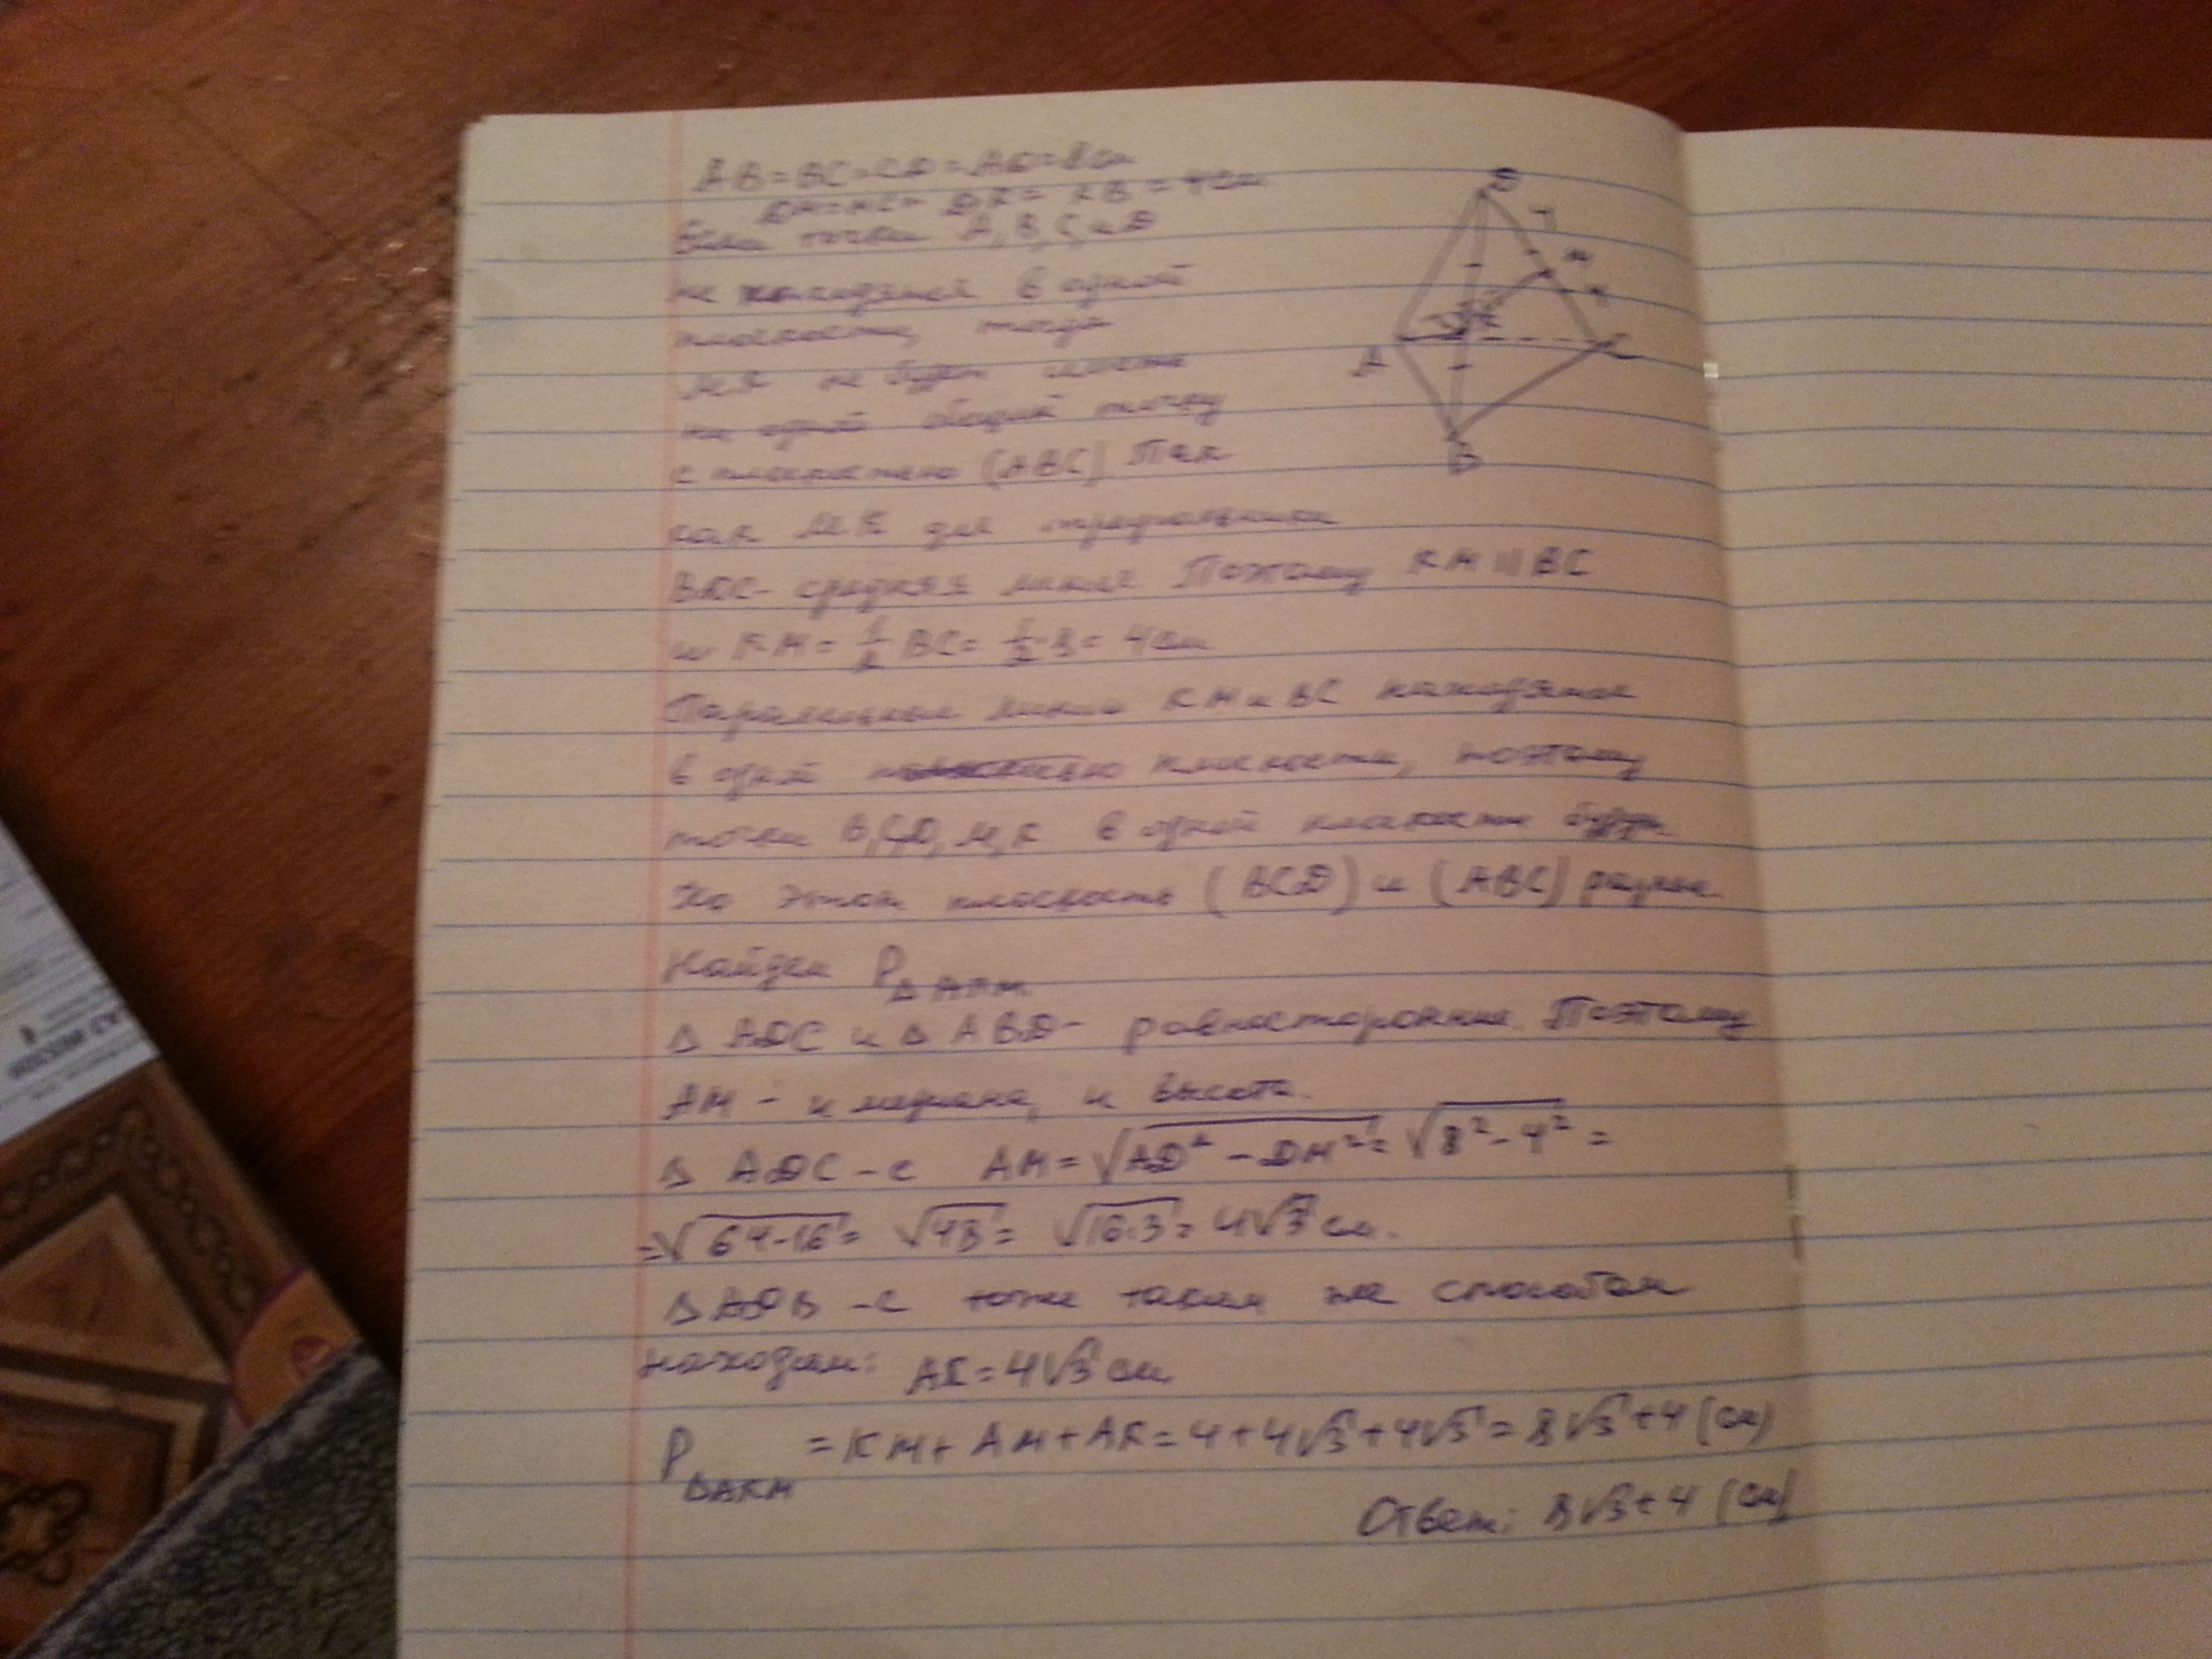 AB=BC=CD=AD=8см
DM=MC= DK= KB=4см
Если точки A, B, C, и D
не находятся в одной
плоскости, тогда
MK не будет иметь
ни одной общей точку
с плоскостью (ABC) Так
как MK для треугольника
BDC- средняя линия Поэтому KM || BC
и KM= 1/2 BC= 1/2·8= 4см
линии KM и BC находятся
в одной плоскости, поэтому
точки B,C,D, M, K в одной плоскости будут
Но этот плоскость (BCD) и (ABC) разные.
Найдем P△AKM
△ ADC и △ ABD- равносторонние. Поэтому
AM - и медиана, и высота.
△ ADC -с AM= √AD² - DM² = √8² - 4² =
=√64-16 = √48 = √16·3 = 4√3 см.
△ADB -с тоже таким же способом
находим: AK=4√3 см
P△AKM =KM+ AM+AK=4+4√3+4√3=8√3+4 (см)
Ответ: 8√3+4 (см)
D
4
M
4
K
A
C
B